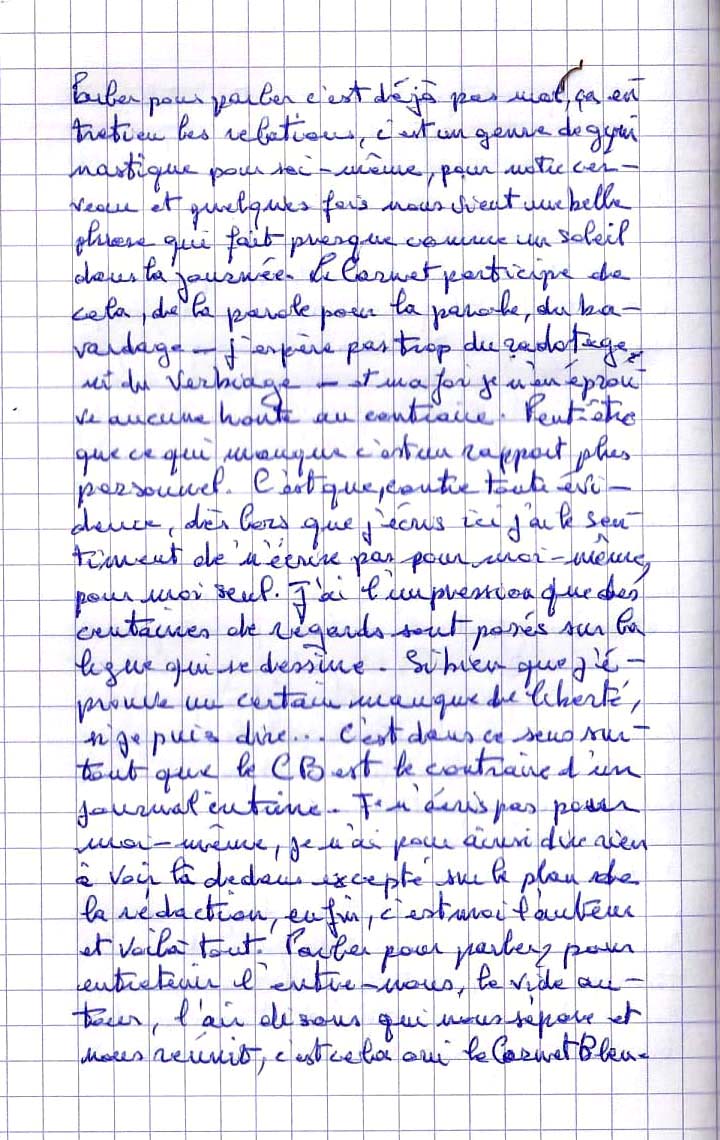 Parler pour parler c'est déjà pas mal, ça en
tretien les relations, c'est un genre de gym
nastique pour soi-même, pour notre cer-
veau et quelques fois nous vient une belle
phrase qui fait presque comme un soleil
dans la journée. Le Carnet participe de
cela, de la parole pour la parole, du ba-
vardage – j'espère pas trop du radotage
ni du verbiage – et ma foi je n'en éprou
ve aucune honte au contraire. Peut-être
que ce qui manque c'est un rapport plus
personnel. C'est que, contre toute évi-
dence, dès lors que j'écris ici j'ai le sen-
timent de n'écrire pas pour moi-même,
pour moi seul. J'ai l'impression que des
centaines de regards sont posés sur la
ligne qui se dessine. Si bien que j'é-
prouve un certain manque de liberté,
si je puis dire... C'est dans ce sens sur-
tout que le CB est le contraire d'un
journal intime. Je n'écris pas pour
moi-même, je n'ai pour ainsi dire rien
à voir là dedans excepté sur le plan de
la rédaction, enfin, c'est moi l'auteur
et voilà tout. Parler pour parler, pour
entretenir l'entre-nous, le vide au-
tour, l'air de sons qui nous sépare et
nous réunit, c'est cela oui le Carnet Bleu.